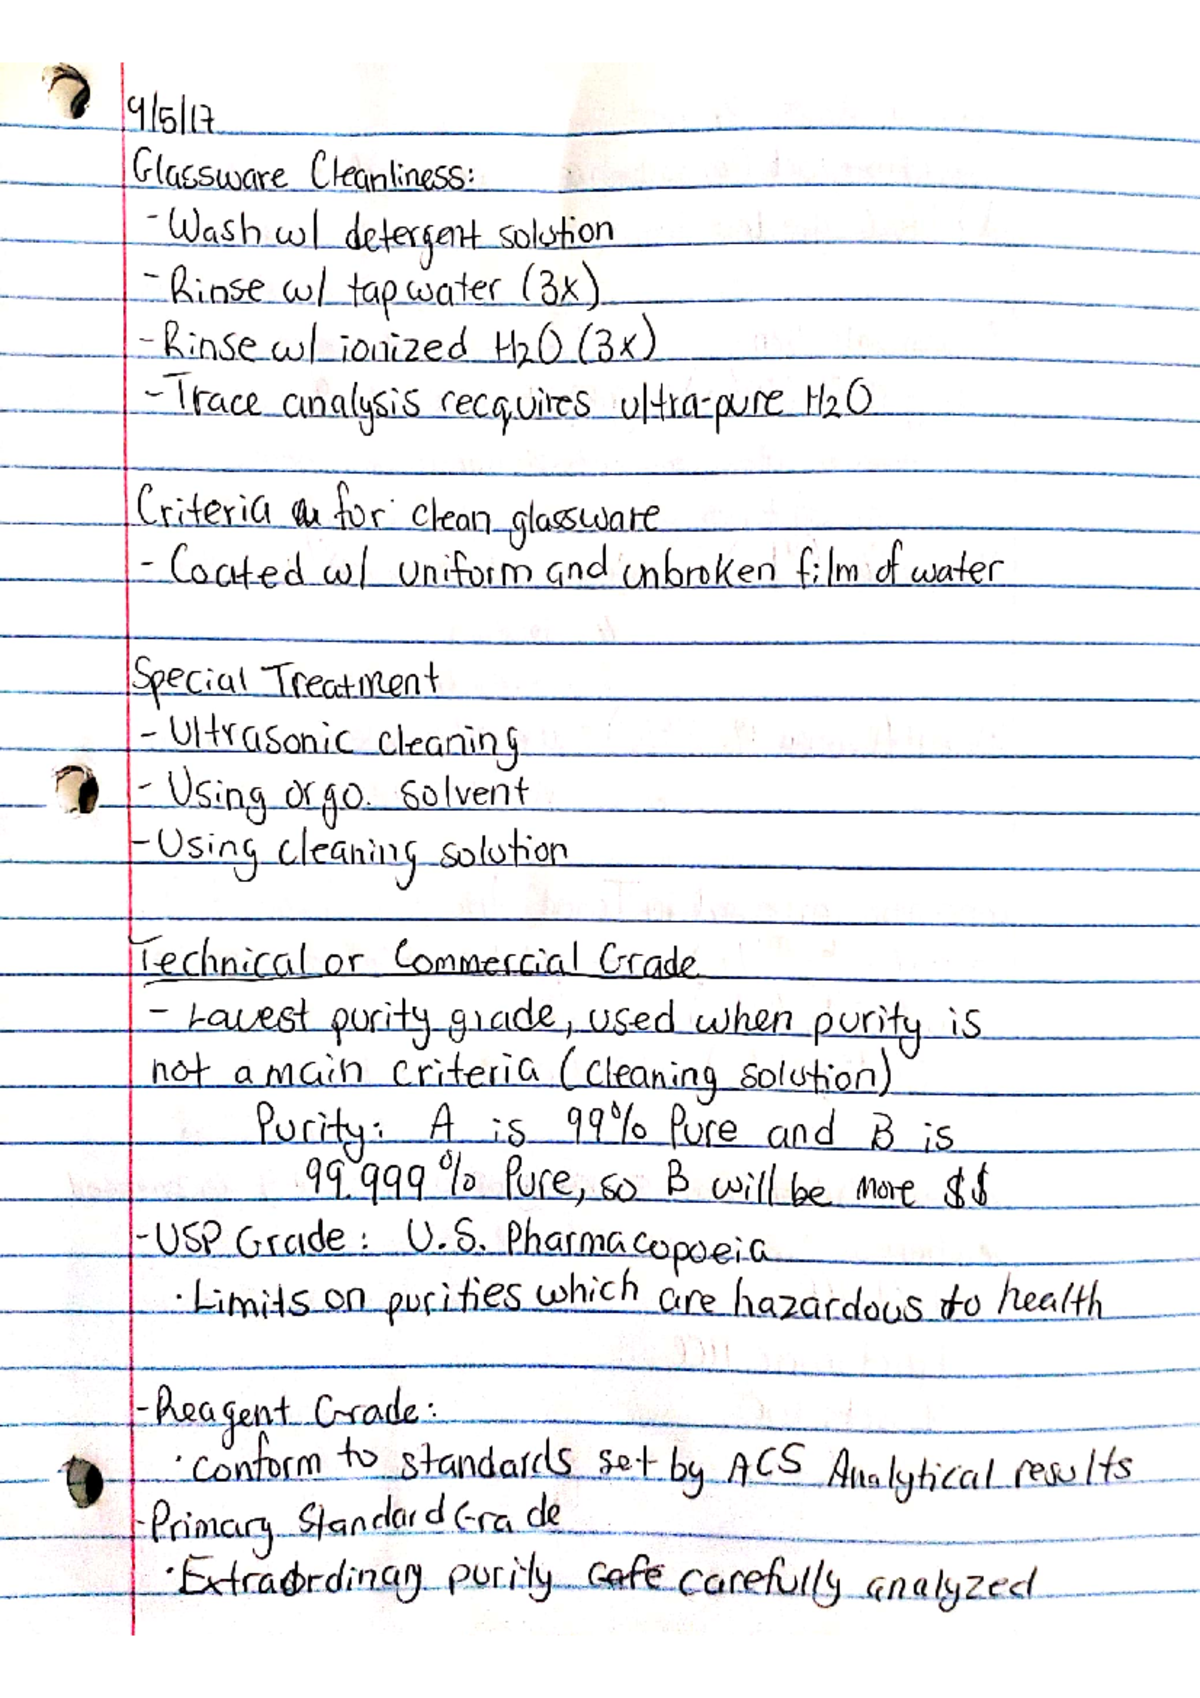 9/5/17
Glassware Cleanliness:
- Wash w/ detergent solution
- Rinse w/ tap water (3x)
- Rinse w/ ionized H2O (3x)
- Trace analysis recquires ultra-pure H2O
Criteria for clean glassware
- Coated w/ uniform and unbroken film of water
Special Treatment
- Ultrasonic cleaning
- Using orgo. solvent
- Using cleaning solution
Technical or Commercial Grade
- Lowest purity grade, used when purity is
not a main criteria (cleaning solution)
Purity: A is 99% Pure and B is
99.999% Pure, so B will be more $$
- USP Grade: U.S. Pharmacopoeia
· Limits on purities which are hazardous to health
- Reagent Grade:
· Conform to standards set by ACS Analytical results
- Primary Standard Grade
· Extraordinary purity carefully analyzed